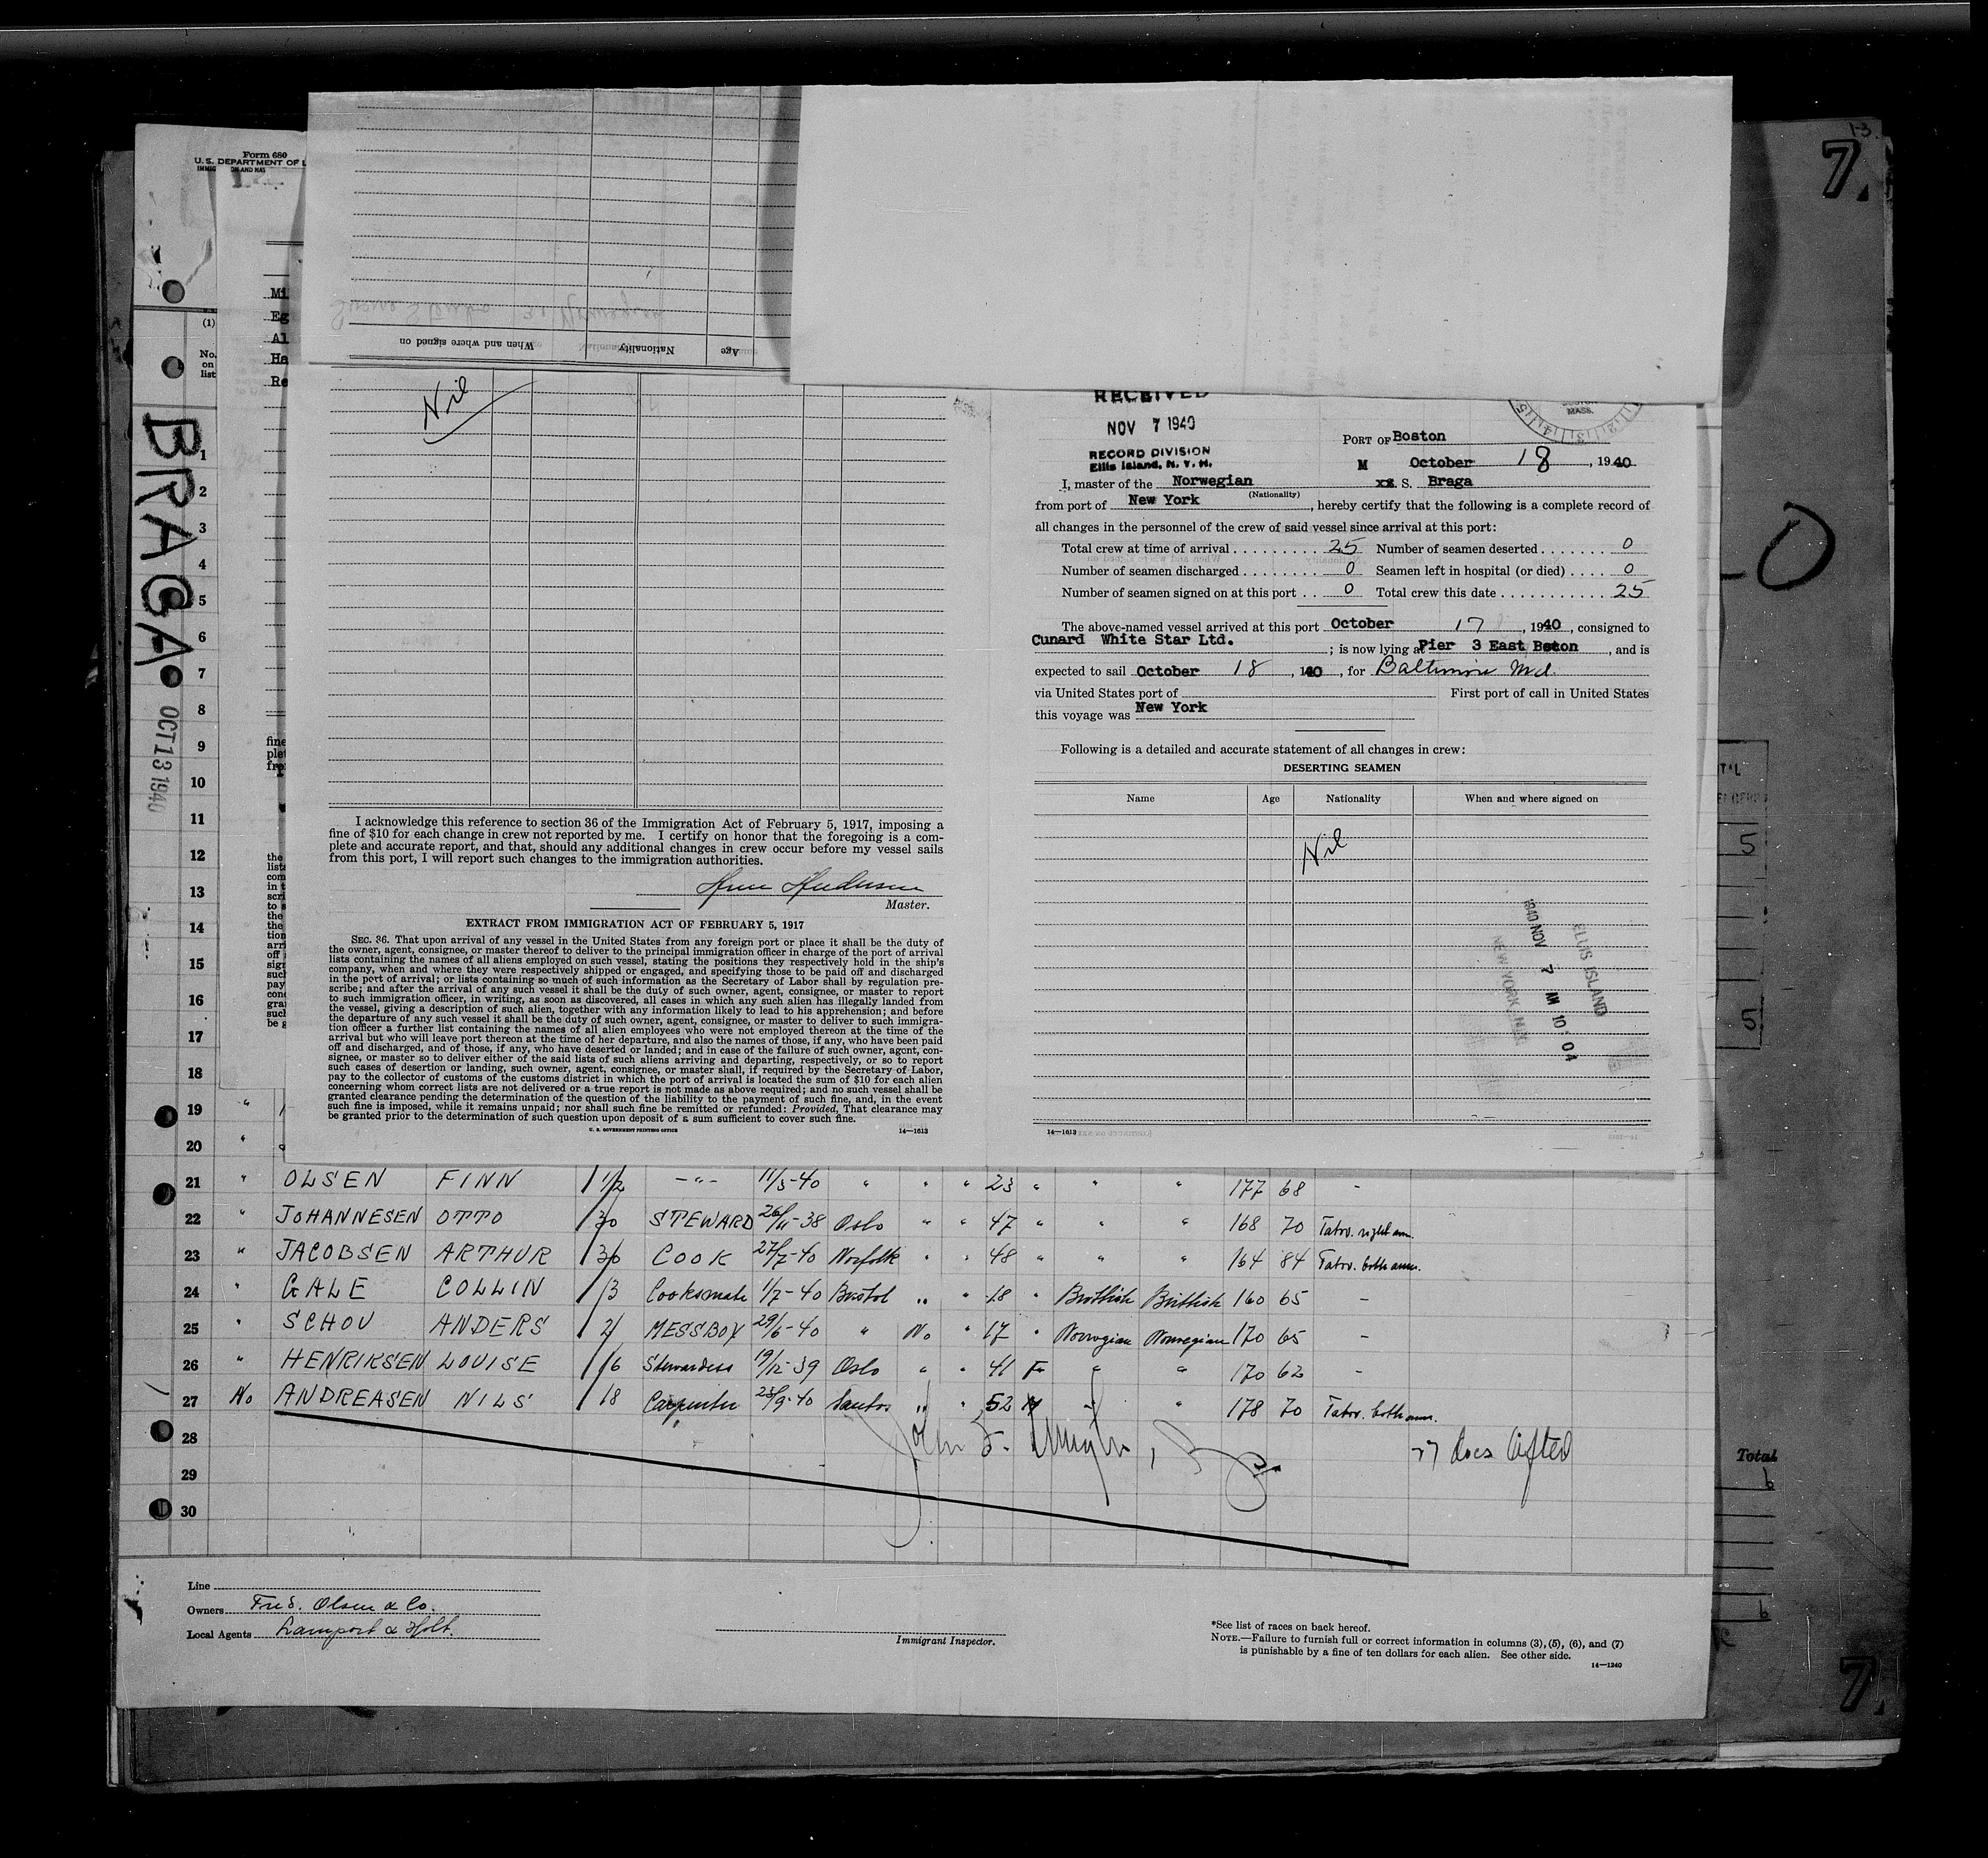 13.
7.
Form 680
U. S. DEPARTMENT OF L
(1)
No. on list
Mi
Eg
Al
Ha
Re
BRAGA
OCT 13 1940
When and where signed on
Nationality
Age
Nil
I acknowledge this reference to section 36 of the Immigration Act of February 5, 1917, imposing a
fine of $10 for each change in crew not reported by me. I certify on honor that the foregoing is a com-
plete and accurate report, and that, should any additional changes in crew occur before my vessel sails
from this port, I will report such changes to the immigration authorities.
Master.
EXTRACT FROM IMMIGRATION ACT OF FEBRUARY 5, 1917
SEC. 36. That upon arrival of any vessel in the United States from any foreign port or place it shall be the duty of
the owner, agent, consignee, or master thereof to deliver to the principal immigration officer in charge of the port of arrival
lists containing the names of all aliens employed on such vessel, stating the positions they respectively hold in the ship's
company, when and where they were respectively shipped or engaged, and specifying those to be paid off and discharged
in the port of arrival; or lists containing so much of such information as the Secretary of Labor shall by regulation pre-
scribe; and after the arrival of any such vessel it shall be the duty of such owner, agent, consignee, or master to report
to such immigration officer, in writing, as soon as discovered, all cases in which any such alien has illegally landed from
the vessel, giving a description of such alien, together with any information likely to lead to his apprehension; and before
the departure of any such vessel it shall be the duty of such owner, agent, consignee, or master to deliver to such immigra-
tion officer a further list containing the names of all alien employees who were not employed thereon at the time of the
arrival but who will leave port thereon at the time of her departure, and also the names of those, if any, who have been paid
off and discharged, and of those, if any, who have deserted or landed; and in case of the failure of such owner, agent, con-
signee, or master so to deliver either of the said lists of such aliens arriving and departing, respectively, or so to report
such cases of desertion or landing, such owner, agent, consignee, or master shall, if required by the Secretary of Labor,
pay to the collector of customs of the customs district in which the port of arrival is located the sum of $10 for each alien
concerning whom correct lists are not delivered or a true report is not made as above required; and no such vessel shall be
granted clearance pending the determination of the question of the liability to the payment of such fine, and, in the event
such fine is imposed, while it remains unpaid; nor shall such fine be remitted or refunded: Provided, That clearance may
be granted prior to the determination of such question upon deposit of a sum sufficient to cover such fine.
U. S. GOVERNMENT PRINTING OFFICE 14—1613
RECEIVED
NOV 7 1940
RECORD DIVISION
Ellis Island, N. Y. H.
MASS.
PORT OF Boston
M October 18, 1940
I, master of the Norwegian xx. S. Braga
(Nationality)
from port of New York, hereby certify that the following is a complete record of
all changes in the personnel of the crew of said vessel since arrival at this port:
Total crew at time of arrival 25 Number of seamen deserted 0
Number of seamen discharged 0 Seamen left in hospital (or died) 0
Number of seamen signed on at this port 0 Total crew this date 25
The above-named vessel arrived at this port October 17, 1940, consigned to
Cunard White Star Ltd. ; is now lying at Pier 3 East Boston, and is
expected to sail October 18, 1940, for Baltimore Md.
via United States port of First port of call in United States
this voyage was New York
Following is a detailed and accurate statement of all changes in crew:
DESERTING SEAMEN
Name Age Nationality When and where signed on
Nil
1940 NOV 7 AM 10 04
ELLIS ISLAND
14—1613
1
2
3
4
5
6
7
8
9
10
11
12
13
14
15
16
17
18
19 "
20 "
21 " OLSEN FINN 1/2 -"- 11/5-40 " " " 23 " " " 177 68 -
22 " JOHANNESEN OTTO 30 STEWARD 26/11-38 Oslo " " 47 " " " 168 70 Tatov. right arm.
23 " JACOBSEN ARTHUR 30 COOK 27/7-40 Norfolk " " 48 " " " 164 84 Tatov. both arms.
24 " GALE COLLIN 3 Cooksmate 1/7-40 Bristol " " 18 " Brittish Brittish 160 65 -
25 " SCHOU ANDERS 2 MESSBOY 29/6-40 " No " 17 " Norwegian Norwegian 170 65 -
26 " HENRIKSEN LOUISE 16 Stewardess 19/12-39 Oslo " " 41 F " " 170 62 -
27 No ANDREASEN NILS 18 Carpenter 23/9-40 Santos " " 52 M " " 178 70 Tatov. both arm.
28 27 docs lifted
29
30
Line
Owners Fred. Olsen & Co.
Local Agents Lamport & Holt.
Immigrant Inspector.
*See list of races on back hereof.
NOTE.—Failure to furnish full or correct information in columns (3), (5), (6), and (7)
is punishable by a fine of ten dollars for each alien. See other side.
14—1240
5
5
Total
6
6
7.